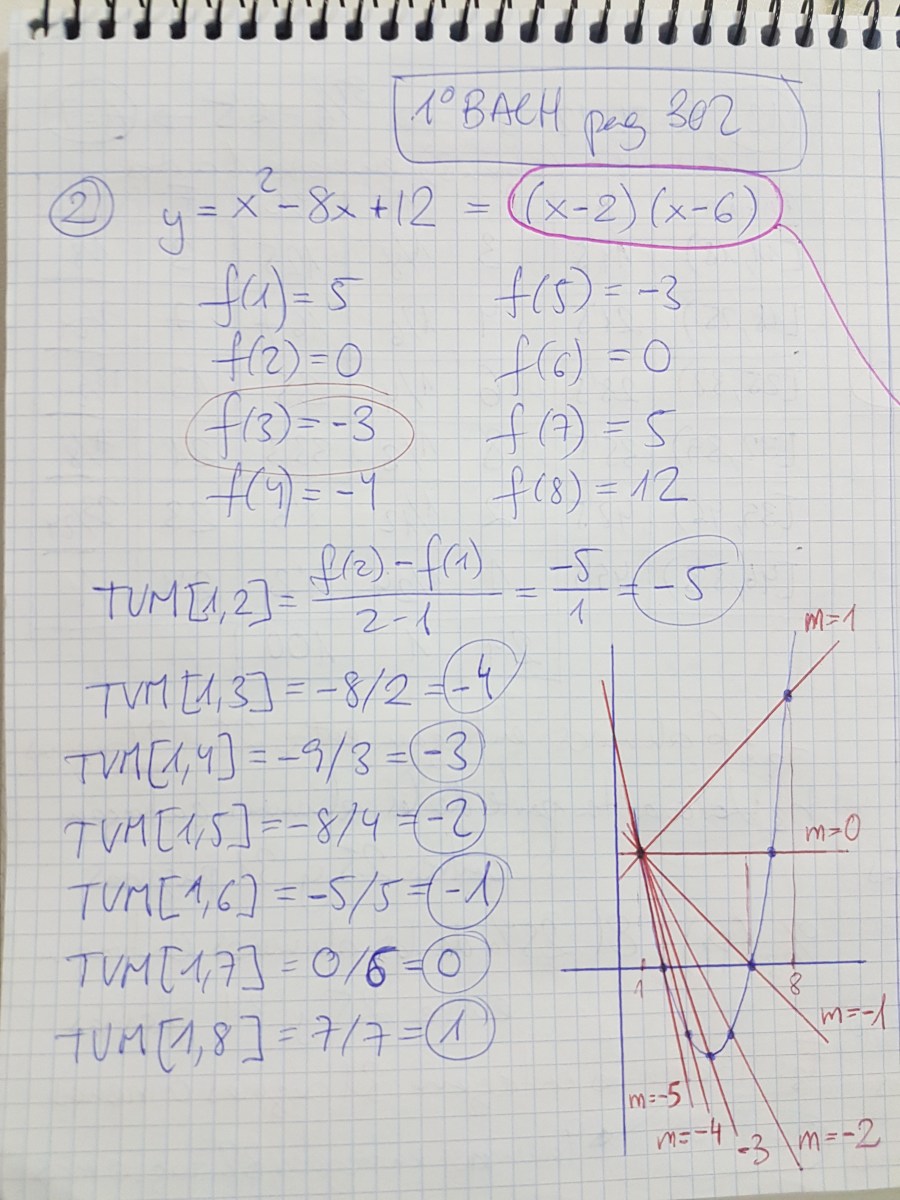 1º BACH pag 302
② y = x² - 8x + 12 = (x-2)(x-6)
f(1) = 5 f(5) = -3
f(2) = 0 f(6) = 0
f(3) = -3 f(7) = 5
f(4) = -4 f(8) = 12
TVM[1,2] = f(2) - f(1) / 2 - 1 = -5/1 = -5
TVM[1,3] = -8/2 = -4
TVM[1,4] = -9/3 = -3
TVM[1,5] = -8/4 = -2
TVM[1,6] = -5/5 = -1
TVM[1,7] = 0/6 = 0
TVM[1,8] = 7/7 = 1
m=1
m=0
1 8
m=-1
m=-5
m=-4 -3 m=-2